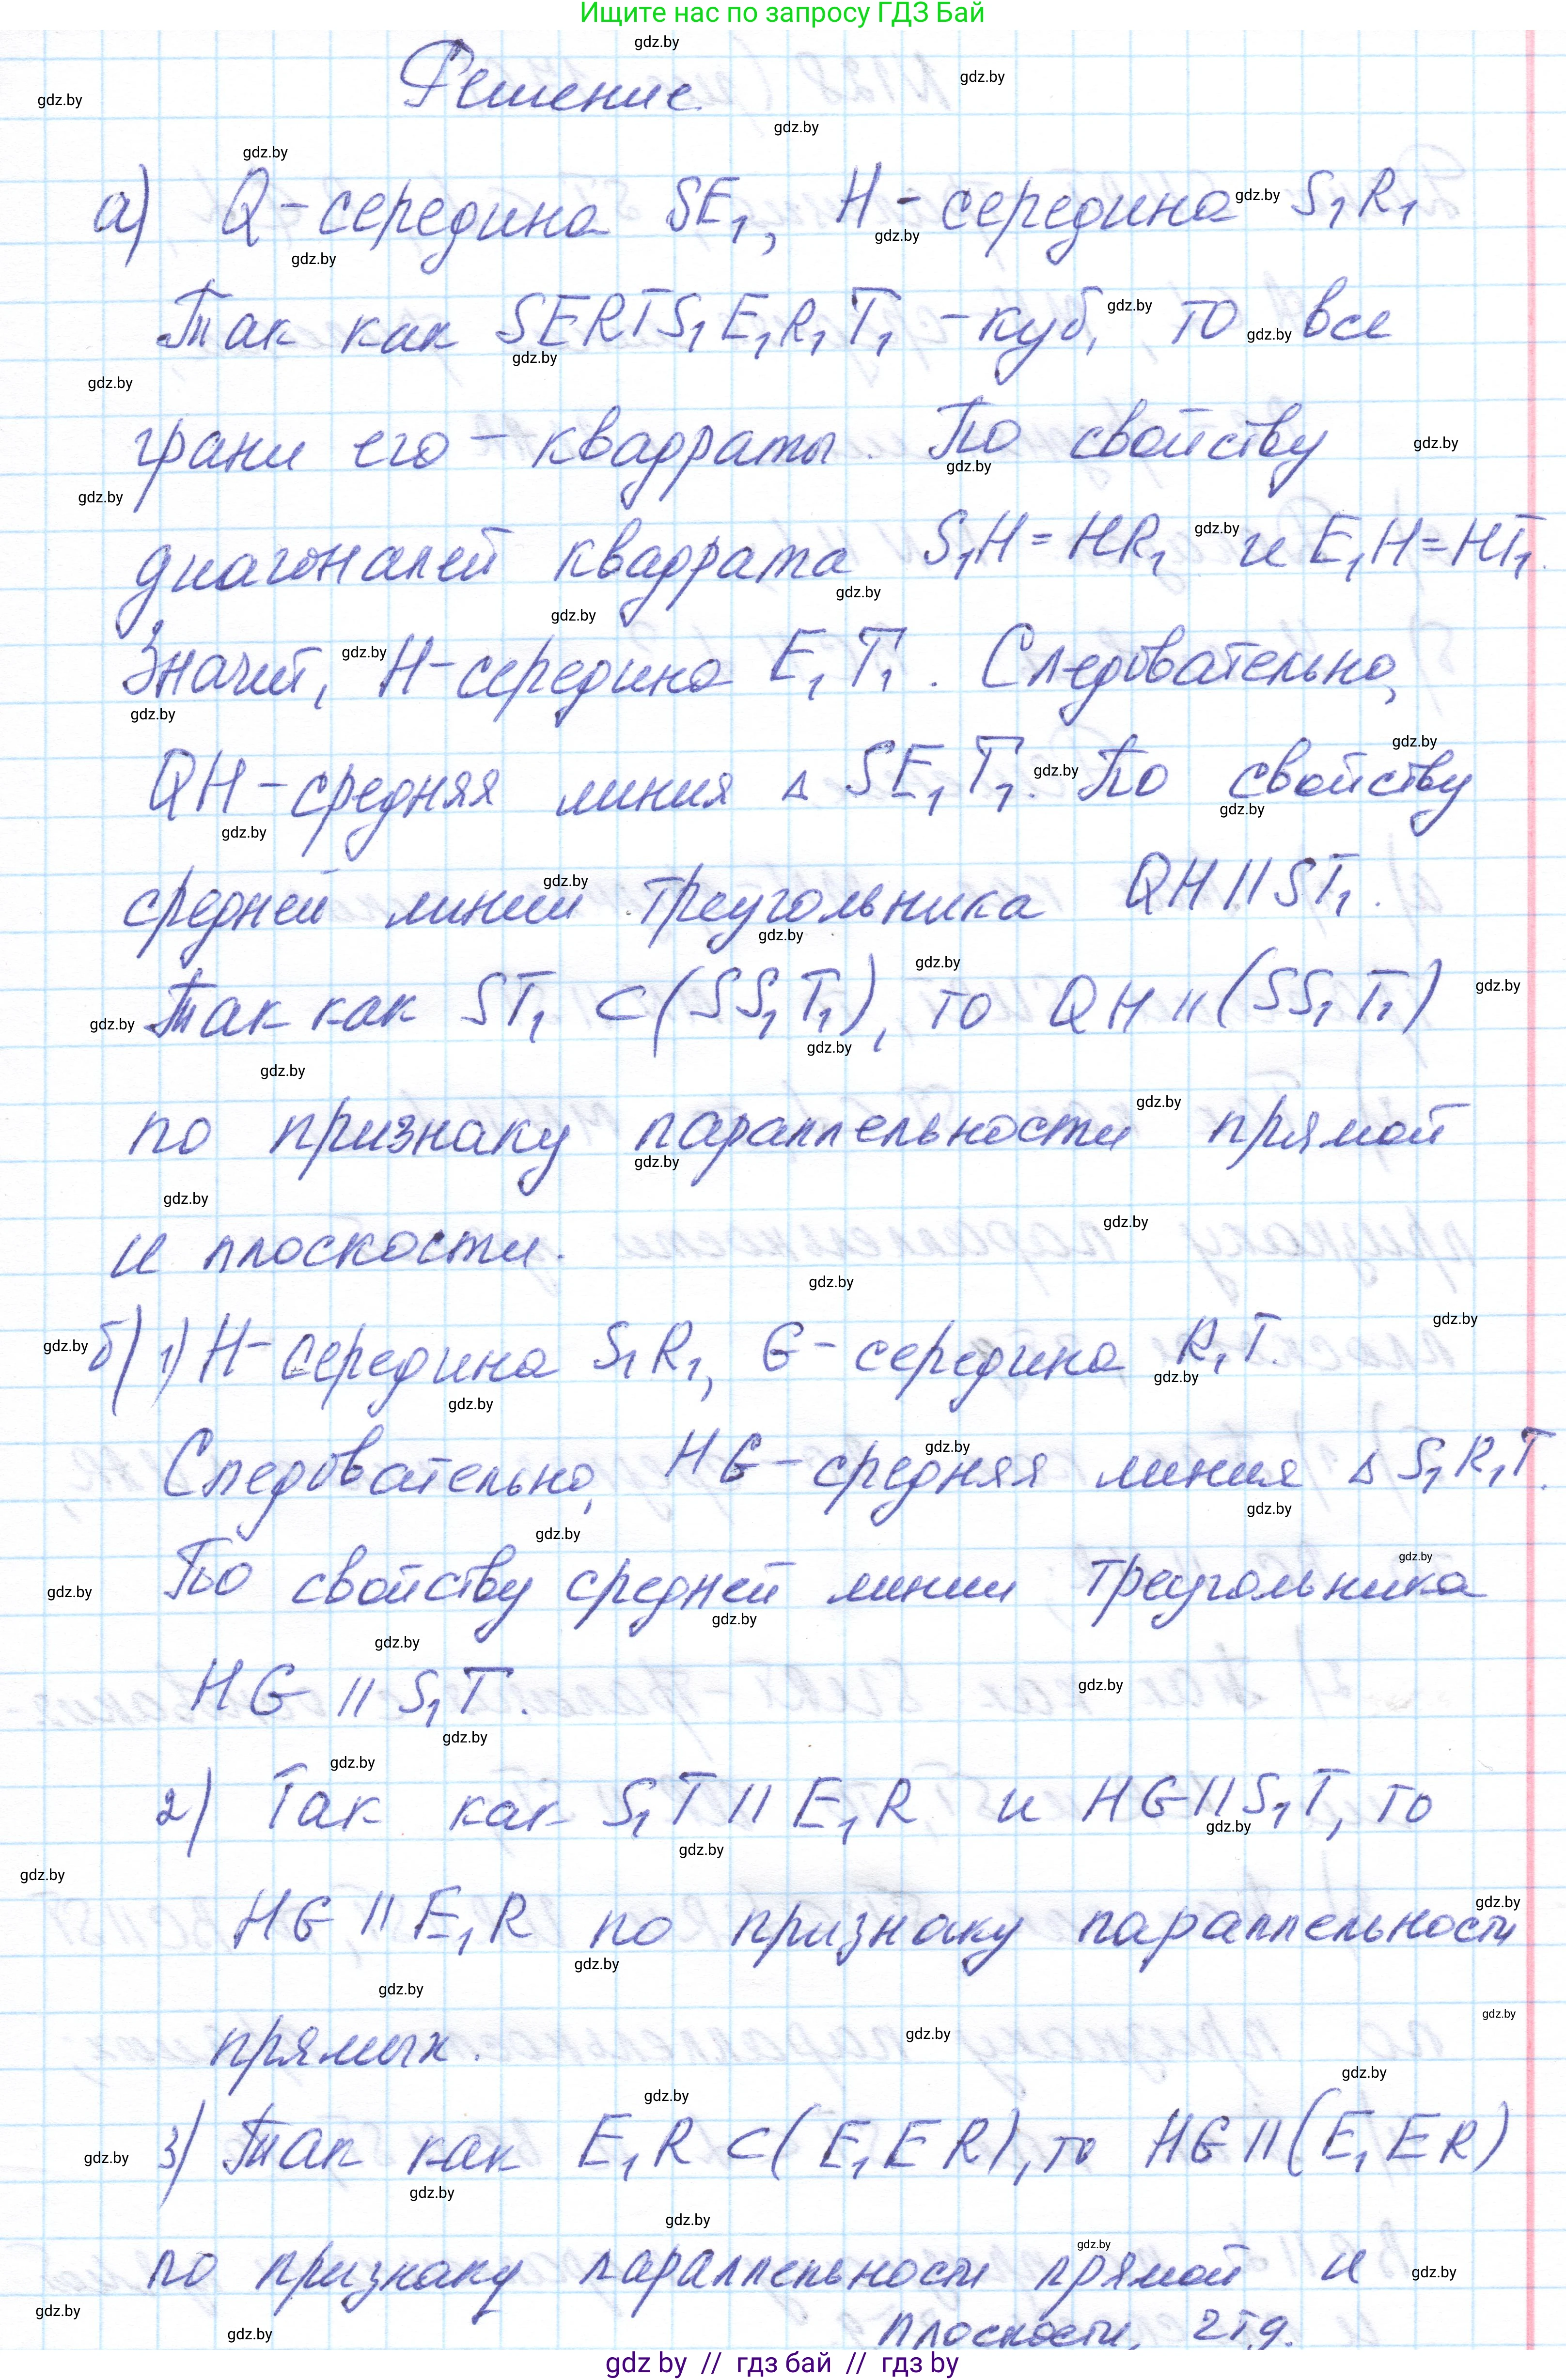 Ищите нас по запросу ГДЗ Бай
Решение.
а) Q - середина SE₁, H - середина S₁R₁
Так как SERTS₁E₁R₁T₁ - куб, то все
грани его - квадраты. По свойству
диагоналей квадрата S₁H = HR₁ и E₁H = HT₁.
Значит, H - середина E₁T₁. Следовательно,
QH - средняя линия △ SE₁T₁. По свойству
средней линии треугольника QH || ST₁.
Так как ST₁ ⊂ (SS₁T₁), то QH || (SS₁T₁)
по признаку параллельности прямой
и плоскости.
б) 1) H - середина S₁R₁, G - середина R₁T.
Следовательно, HG - средняя линия △ S₁R₁T.
По свойству средней линии треугольника
HG || S₁T.
2) Так как S₁T || E₁R и HG || S₁T, то
HG || E₁R по признаку параллельности
прямых.
3) Так как E₁R ⊂ (E₁ER), то HG || (E₁ER)
по признаку параллельности прямой и
плоскости, чтд.
gdz by // гдз бай // гдз by